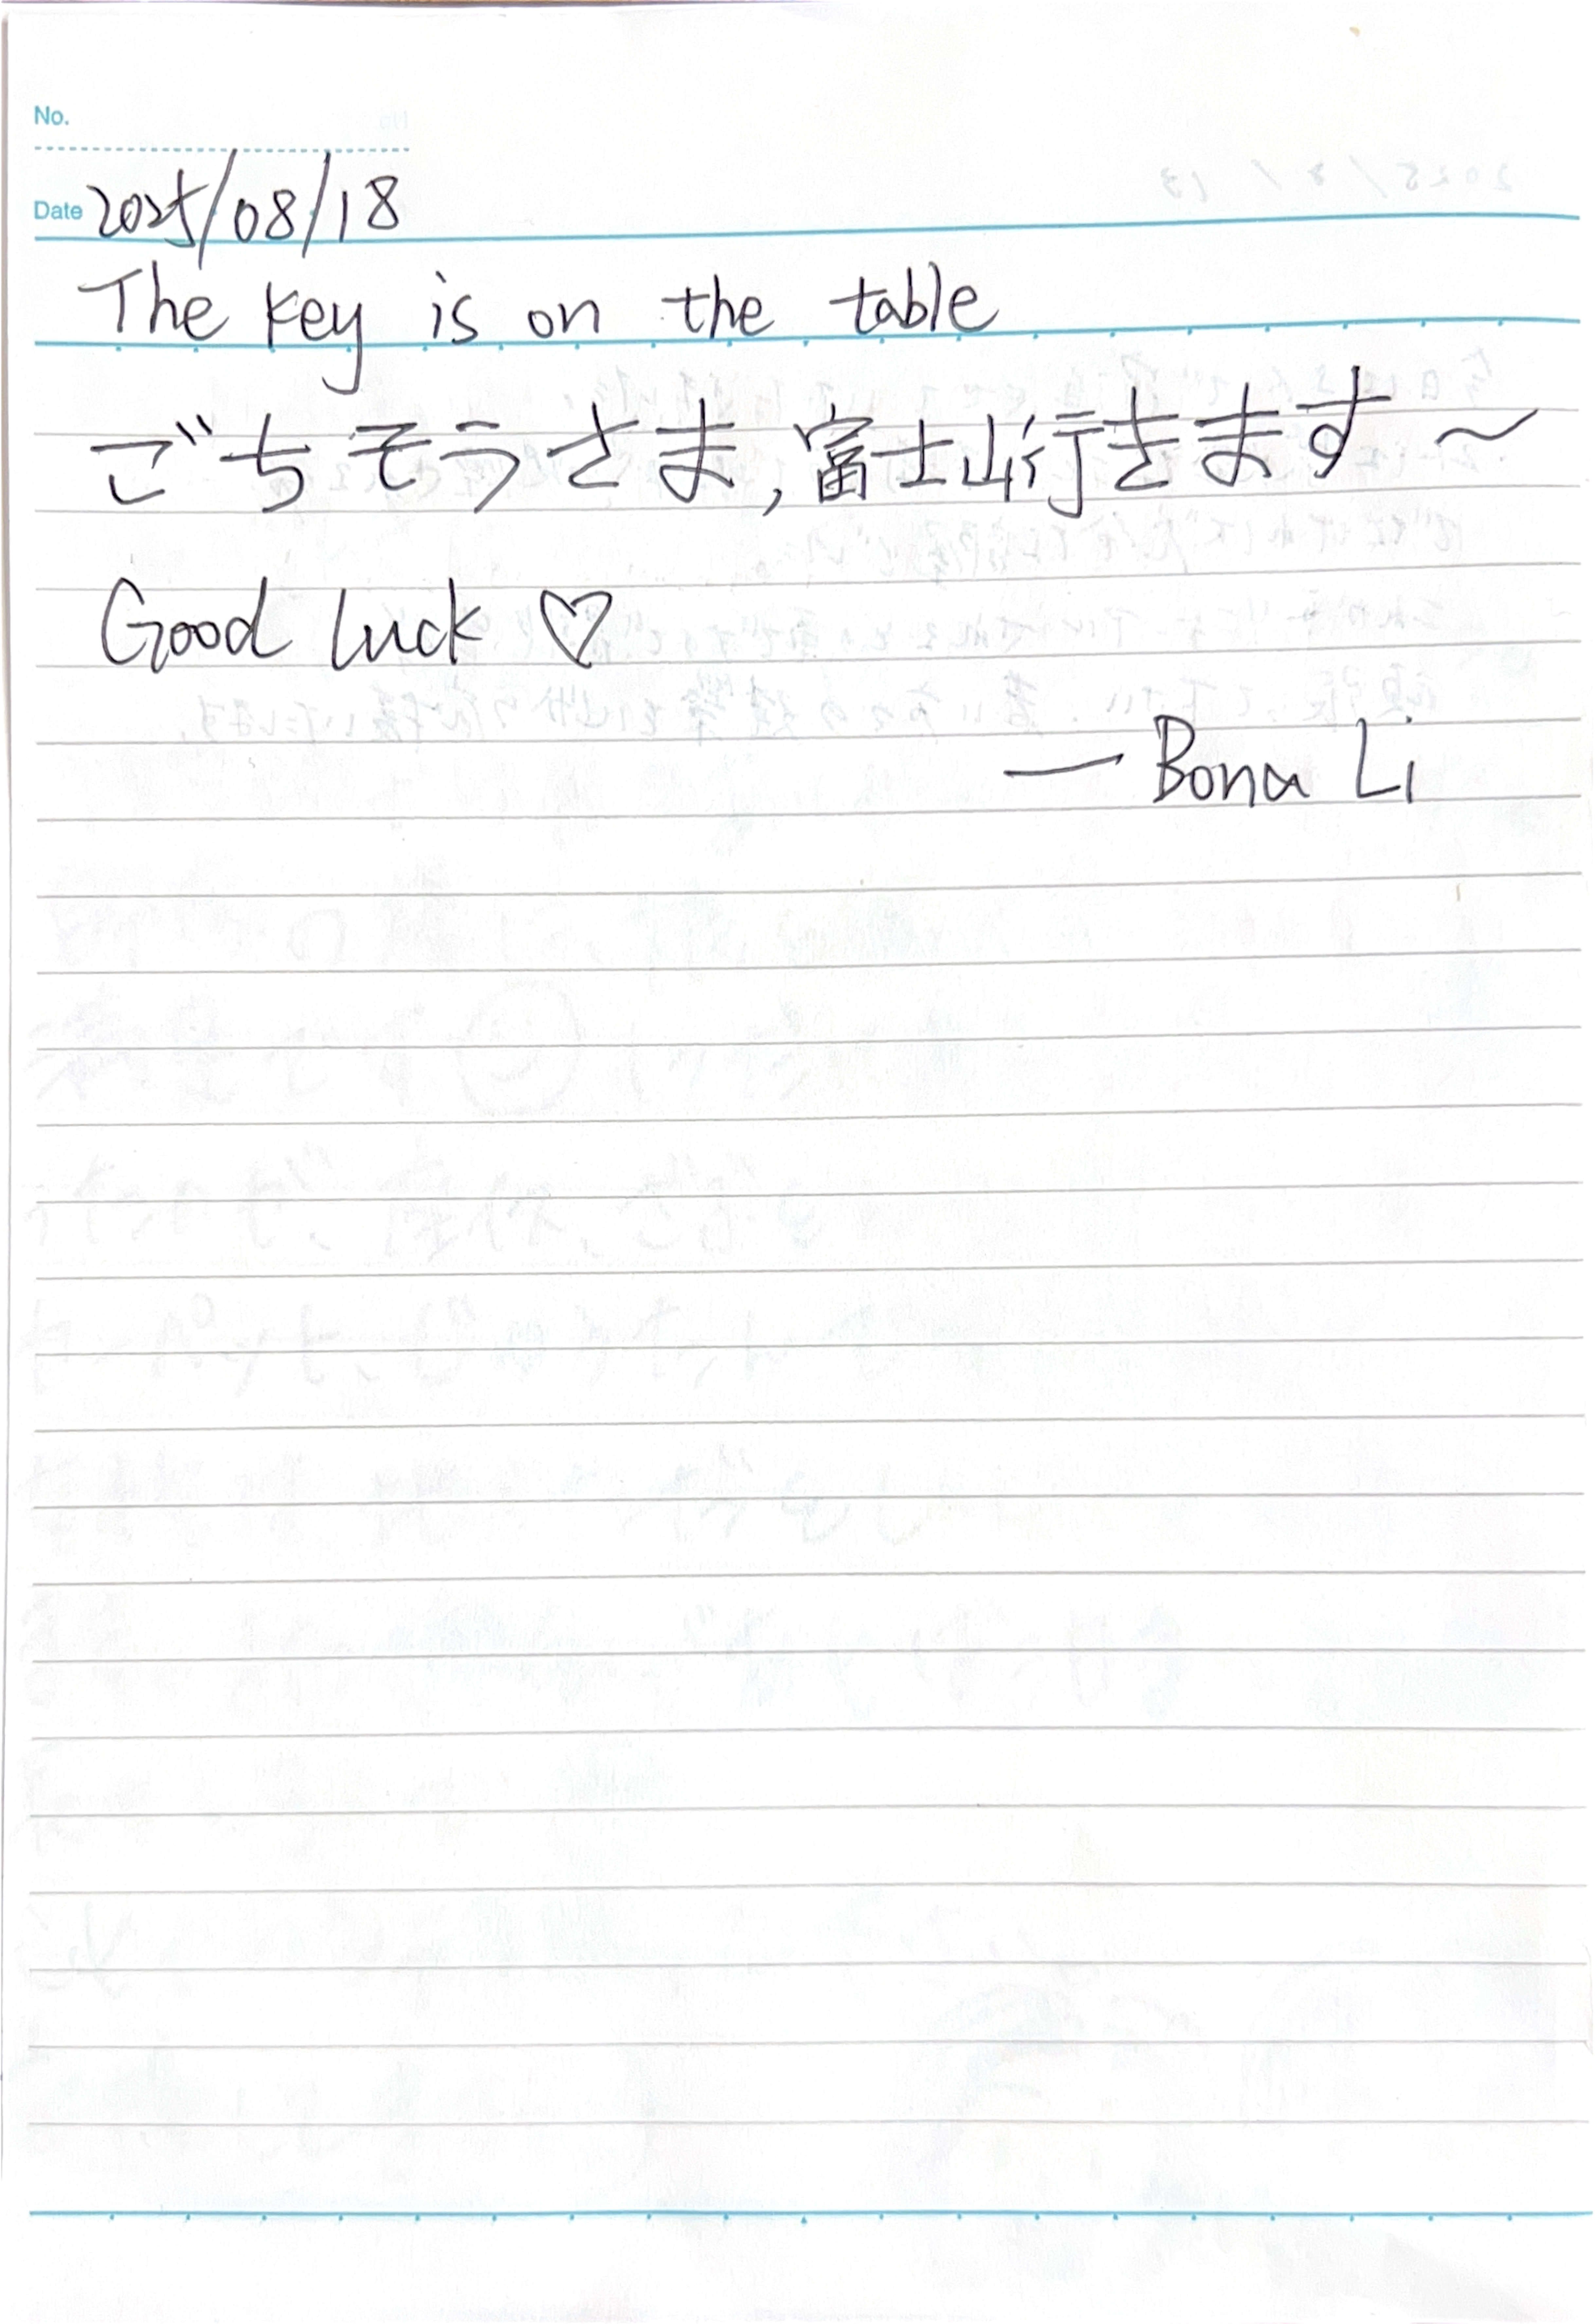 No.
Date 2025/08/18
The key is on the table
ごちそうさま,富士山行きます～
Good luck ♡
— Bona Li